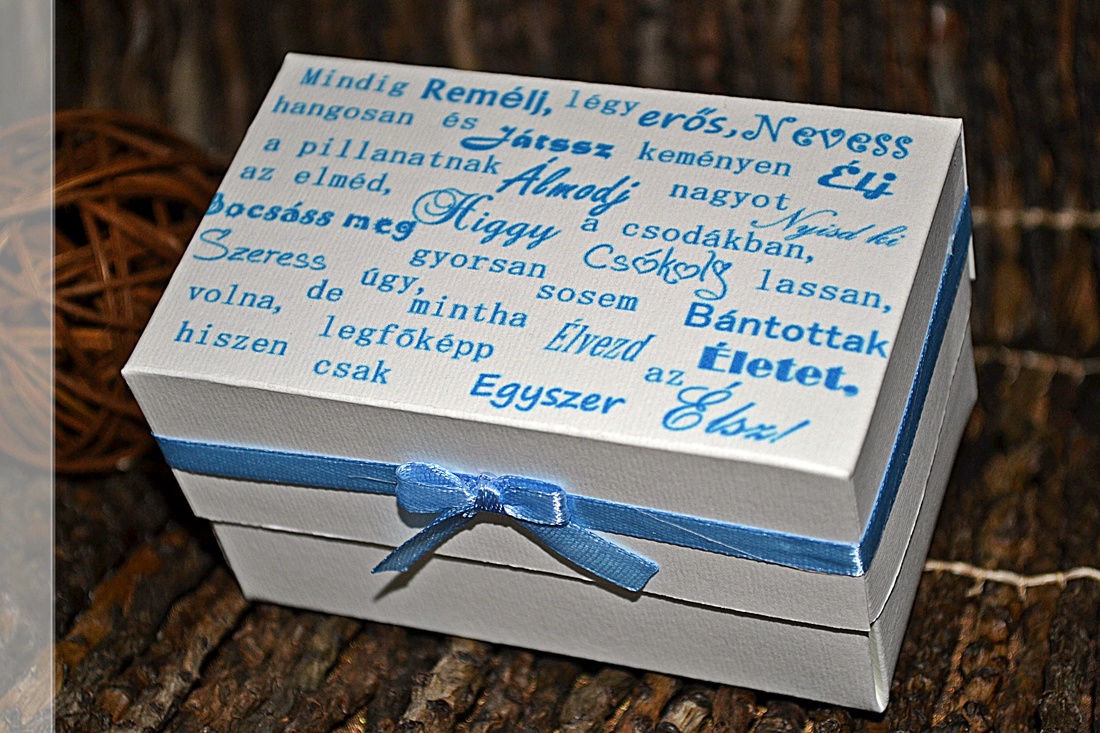 Mindig Remélj, légy erős, Nevess
hangosan és Játssz keményen Élj
a pillanatnak Álmodj nagyot Nyisd ki
az elméd, Higgy a csodákban,
Bocsáss meg gyorsan Csókolj lassan,
Szeress úgy, mintha sosem Bántottak
volna, de legfőképp Élvezd az Életet,
hiszen csak Egyszer Élsz!